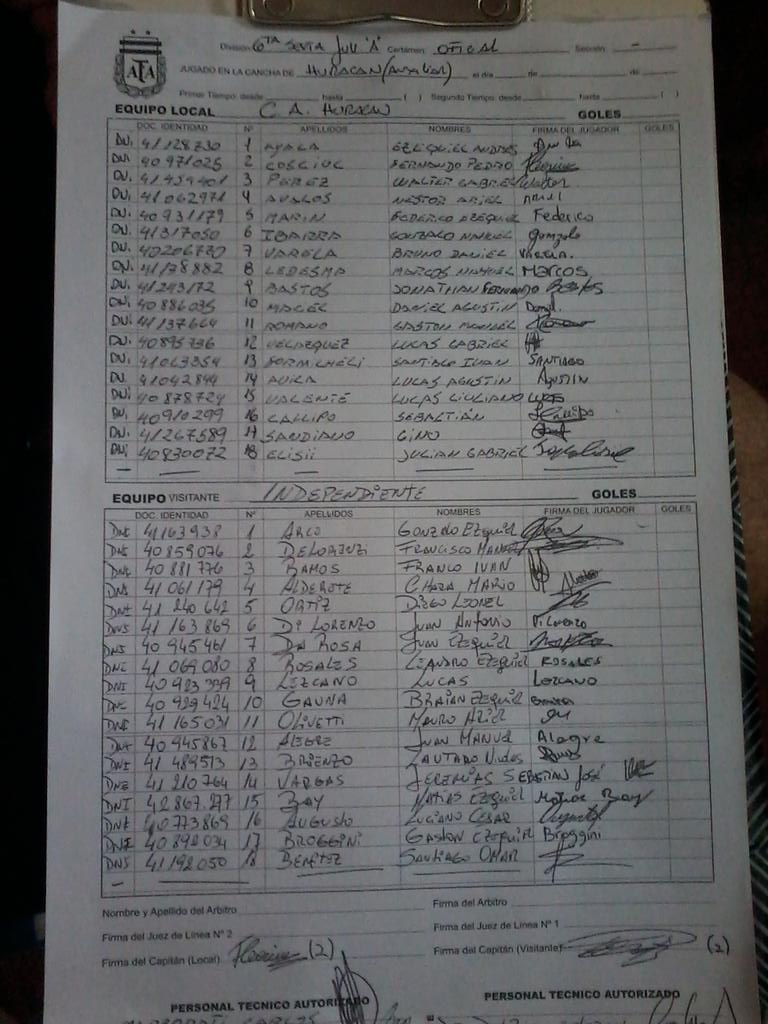 División 6TA SEXTA JUV "A" Certamen OFICIAL Sección -
JUGADO EN LA CANCHA DE HURACAN (AUXILIAR) el día de de
Primer Tiempo: desde hasta ( ) Segundo Tiempo: desde hasta ( )
EQUIPO LOCAL C. A. HURACAN GOLES
DOC. IDENTIDAD Nº APELLIDOS NOMBRES FIRMA DEL JUGADOR GOLES
DNI 41128730 1 AYALA EZEQUIEL ANDRES
DNI 40971025 2 COSCIUC FERNANDO PEDRO
DNI 41459401 3 PEREZ WALTER GABRIEL Walter
DNI 41062971 4 AVALOS NESTOR ARIEL
DNI 40931179 5 MARIN FEDERICO EZEQUIEL Federico
DNI 41317050 6 IBARRA GONZALO NAHUEL Gonzalo
DNI 40206770 7 VARELA BRUNO DANIEL VARELA.
DNI 41178882 8 LEDESMA MARCOS NAHUEL MARCOS
DNI 41243172 9 BASTOS JONATHAN FERNANDO
DNI 40886035 10 MACIEL DANIEL AGUSTIN
DNI 41137664 11 ROMANO GASTON MANUEL
DNI 40895736 12 VELAZQUEZ LUCAS GABRIEL
DNI 41063354 13 FORMICHELI SANTIAGO IVAN SANTIAGO
DNI 41042844 14 AVILA LUCAS AGUSTIN AGUSTIN
DNI 40878724 15 VALENTE LUCAS GIULIANO
DNI 40910299 16 CALLIPO SEBASTIÁN
DNI 41267589 17 SANDIANO GINO
DNI 40830072 18 ELISII JULIAN GABRIEL
EQUIPO VISITANTE INDEPENDIENTE GOLES
DOC. IDENTIDAD Nº APELLIDOS NOMBRES FIRMA DEL JUGADOR GOLES
DNI 41163938 1 ARCO GONZALO EZEQUIEL
DNI 40859076 2 DELORENZI FRANCISCO MANUEL
DNI 40881776 3 RAMOS FRANCO IVAN
DNI 41061179 4 ALDERETE MARIO
DNI 41240642 5 ORTIZ DIEGO LEONEL
DNI 41163869 6 DI LORENZO JUAN ANTONIO
DNI 40945461 7 DA ROSA JUAN EZEQUIEL
DNI 41069080 8 ROSALES LEANDRO EZEQUIEL ROSALES
DNI 40923399 9 LEZCANO LUCAS LEZCANO
DNI 40929424 10 GAUNA BRAIAN EZEQUIEL
DNI 41165031 11 OLIVETTI MAURO ARIEL
DNI 40945867 12 ALEGRE JUAN MANUEL Alegre
DNI 41489513 13 BRIENZO LAUTARO
DNI 41210764 14 VARGAS JEREMIAS SEBASTIAN JOSÉ
DNI 42867277 15 BAY MATIAS EZEQUIEL Matias Bay
DNI 40773869 16 AUGUSTO LUCIANO CESAR
DNI 40892034 17 BROGGINI GASTON EZEQUIEL Broggini
DNI 41192050 18 BENITEZ SANTIAGO OMAR
Nombre y Apellido del Arbitro Firma del Arbitro
Firma del Juez de Linea Nº 2 Firma del Juez de Linea Nº 1
Firma del Capitán (Local) (2) Firma del Capitán (Visitante) (2)
PERSONAL TECNICO AUTORIZADO PERSONAL TECNICO AUTORIZADO